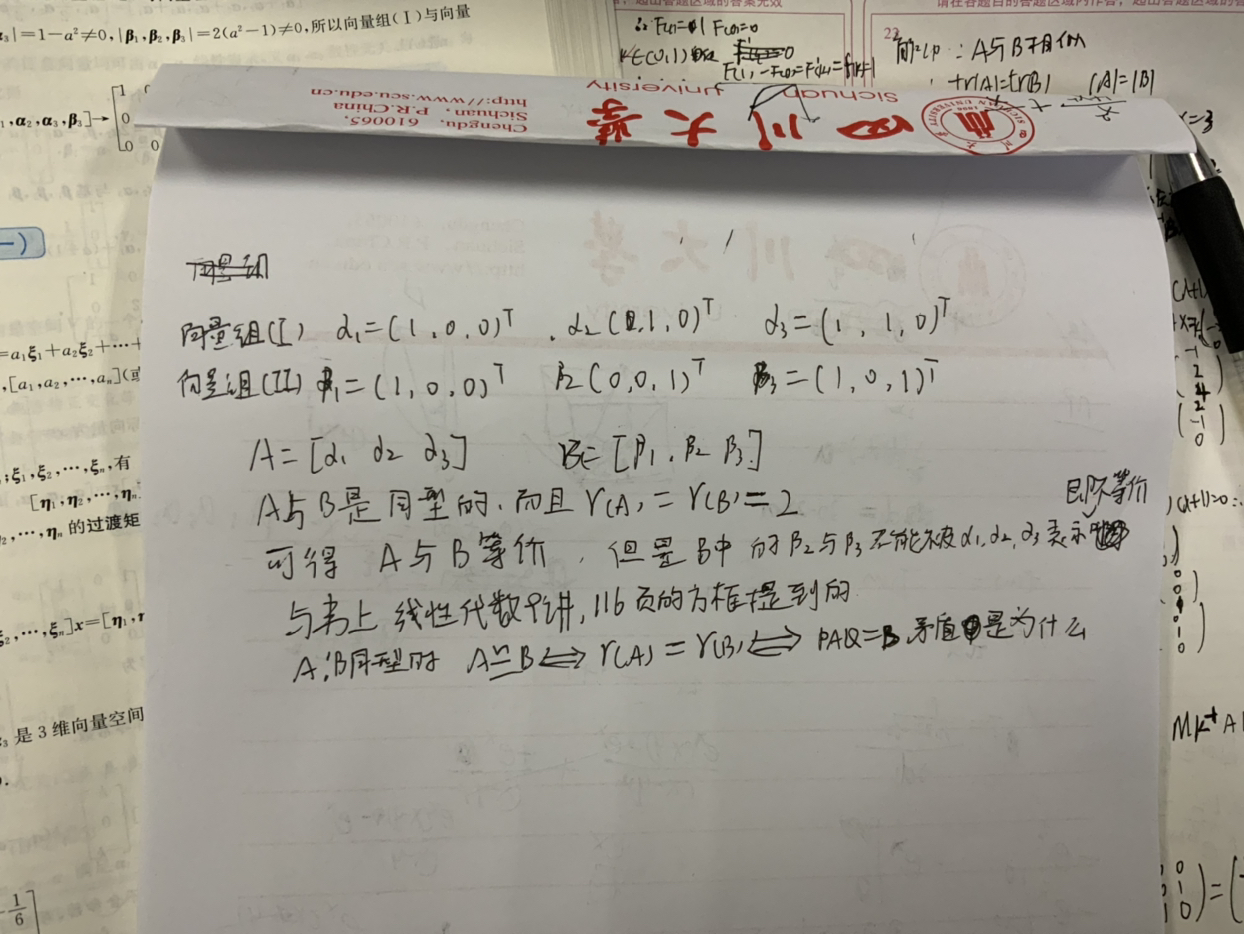 α₃|=1-a²≠0,|β₁,β₂,β₃|=2(a²-1)≠0,所以向量组(Ⅰ)与向量
₁,α₂,α₃,β₃]→
一)
=a₁ξ₁+a₂ξ₂+⋯+
,[a₁,a₂,⋯,aₙ](或
;ξ₁,ξ₂,⋯,ξₙ,有
[η₁,η₂,⋯,ηₙ
₂,⋯,ηₙ的过渡矩
ξ₂,⋯,ξₙ]x=[η₁,η
₃是3维向量空间
-1/6
请在各题目的答题区域内作答,超出答题区域的答
22
∵A与B相似
tr(A)=tr(B) |A|=|B|
四川大学
Sichuan University
Chengdu. 610065.
Sichuan P.R.China
http://www.scu.edu.cn
向量组(I) α₁=(1,0,0)ᵀ . α₂(0,1,0)ᵀ α₃=(1,1,0)ᵀ
向量组(II) β₁=(1,0,0)ᵀ β₂(0,0,1)ᵀ β₃=(1,0,1)ᵀ
A=[α₁ α₂ α₃] B=[β₁,β₂ β₃]
A与B是同型的,而且r(A)=r(B)=2
可得 A与B等价,但是B中的β₂与β₃不能被α₁,α₂,α₃表示 即不等价
与书上线性代数9讲,116页的方框提到的
A,B同型时 A≅B⟺r(A)=r(B)⟺PAQ=B 矛盾是为什么